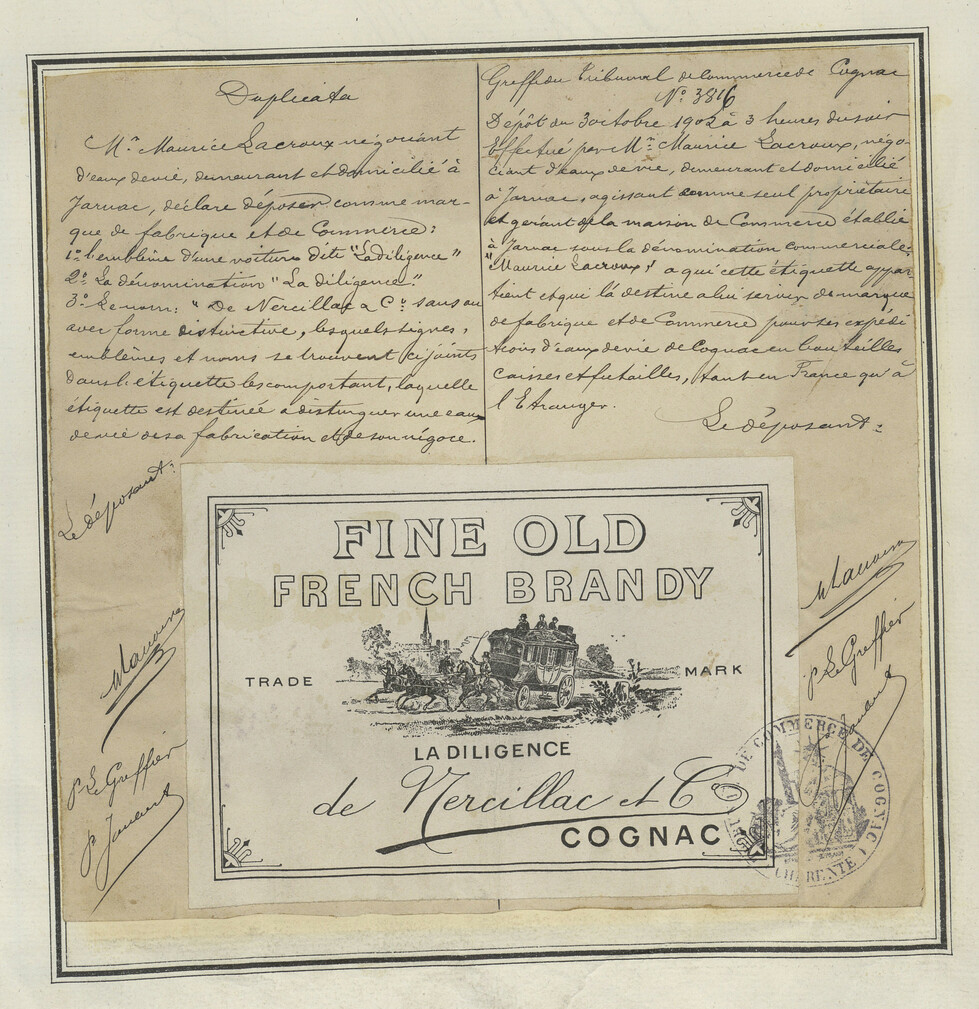 Duplicata
Mr. Maurice Lacroux négociant
d'eaux de vie, demeurant et domicilié à
Jarnac, déclare déposer comme mar-
que de fabrique et de Commerce:
1° l'emblème d'une voiture dite "La diligence"
2° La dénomination "La diligence".
3° Le nom: "De Nercillac & Cie" sans ou
avec forme distinctive, lesquels signes,
emblèmes et noms se trouvent ci joints
dans l'étiquette les comportant, laquelle
étiquette est destinée a distinguer une eau
de vie de sa fabrication et de son négoce.
Le déposant:
P. Le Greffier
Greffe du Tribunal de Commerce de Cognac
N° 3816
Dépôt du 3 octobre 1902 à 3 heures du soir
Effectué par Mr. Maurice Lacroux, négo-
ciant d'eaux de vie, demeurant et domicilié
à Jarnac, agissant comme seul propriétaire
et gérant de la maison de Commerce établie
à Jarnac sous la dénomination commerciale:
"Maurice Lacroux", a qui cette étiquette appar
tient et qui la destine a lui servir de marque
de fabrique et de Commerce pour ses expédi
tions d'eaux de vie de Cognac en bouteilles
caisses et futailles, tant en France qu'à
l'Etranger.
Le déposant:
P. Le Greffier
FINE OLD
FRENCH BRANDY
TRADE MARK
LA DILIGENCE
de Nercillac et Co
COGNAC
DE COMMERCE DE COGNAC
CHARENTE